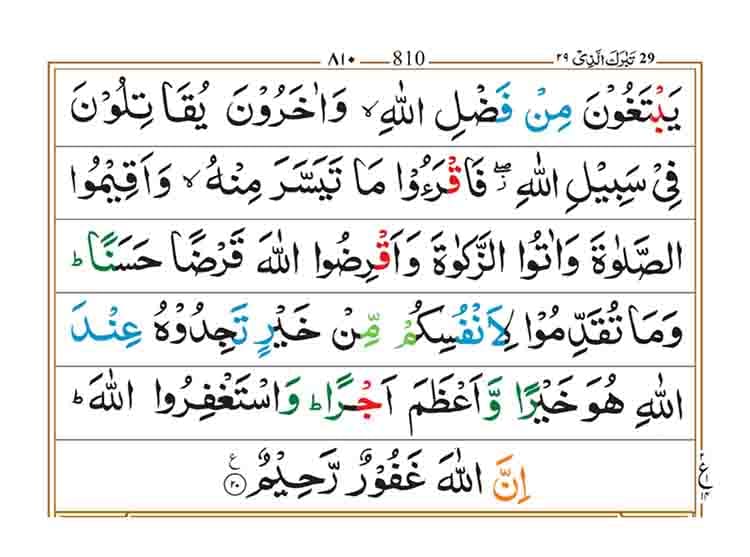 ٨١٠ 810 تَبٰرَكَ الَّذِىْ ٢٩ 29
يَبْتَغُوْنَ مِنْ فَضْلِ اللّٰهِ ۙ وَاٰخَرُوْنَ يُقَاتِلُوْنَ
فِىْ سَبِيْلِ اللّٰهِ ۖ فَاقْرَءُوْا مَا تَيَسَّرَ مِنْهُ ۙ وَاَقِيْمُوا
الصَّلٰوةَ وَاٰتُوا الزَّكٰوةَ وَاَقْرِضُوا اللّٰهَ قَرْضًا حَسَنًا ؕ
وَمَا تُقَدِّمُوْا لِاَنْفُسِكُمْ مِّنْ خَيْرٍ تَجِدُوْهُ عِنْدَ
اللّٰهِ هُوَ خَيْرًا وَّاَعْظَمَ اَجْرًا ؕ وَاسْتَغْفِرُوا اللّٰهَ ؕ
اِنَّ اللّٰهَ غَفُوْرٌ رَّحِيْمٌ ۟ ٢٠ ع
٢ ع ١٤